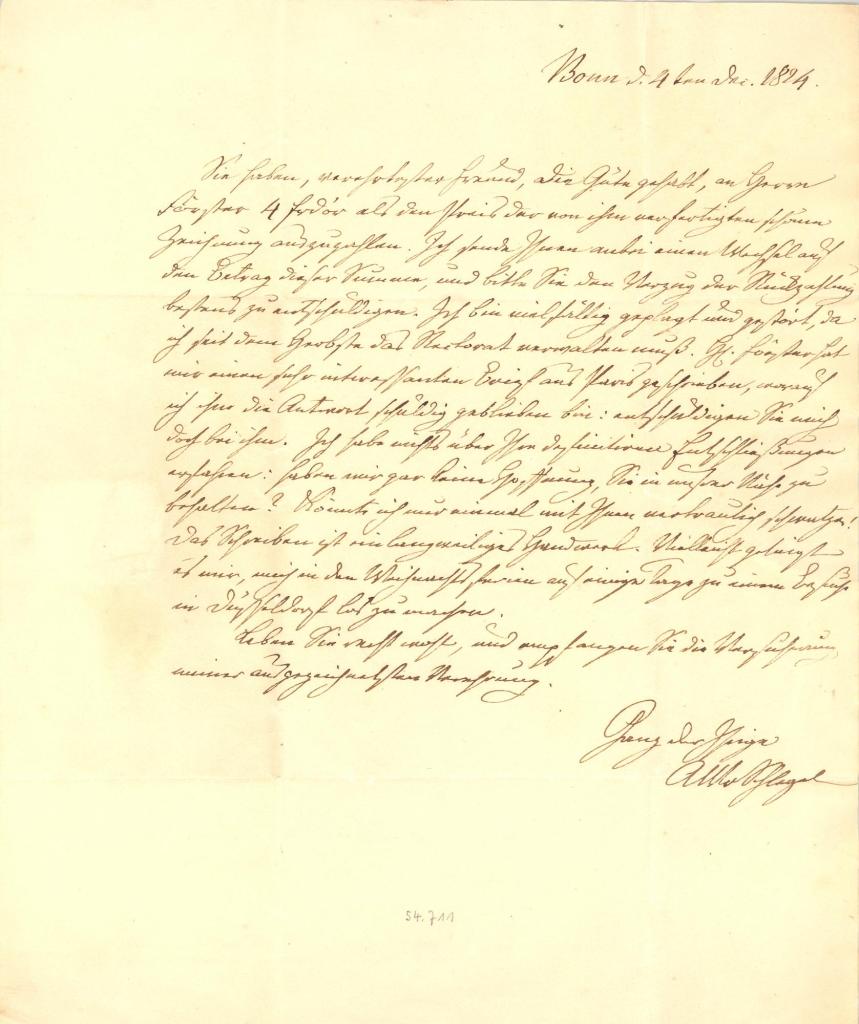 Bonn d. 4ten Dec. 1824.
Sie haben, verehrtester Freund, die Güte gehabt, an Herrn
Förster 4 Frdór als den Preis der von ihm verfertigten schönen
Zeichnung auszuzahlen. Ich sende Ihnen anbei einen Wechsel auf
den Betrag dieser Summe, und bitte Sie den Verzug der Rückzahlung
bestens zu entschuldigen. Ich bin vielfältig geplagt und gestört, da
ich seit dem Herbste das Rectorat verwalten muß. H. Förster hat
mir einen sehr interessanten Brief aus Paris geschrieben, worauf
ich ihm die Antwort schuldig geblieben bin: entschuldigen Sie mich
doch bei ihm. Ich habe nichts über Ihre definitiven Entschließungen
erfahren: haben wir gar keine Hoffnung, Sie in unsrer Nähe zu
behalten? Könnte ich nur einmal mit Ihnen vertraulich schwatzen!
Das Schreiben ist ein langweiliges Handwerk. Vielleicht gelingt
es mir, mich in den Weihnachtsferien auf einige Tage zu einem Besuche
in Düsseldorf los zu machen.
Leben Sie recht wohl, und empfangen Sie die Versicherung
meiner ausgezeichnetsten Verehrung.
Ganz der Ihrige
AWvSchlegel
54.711